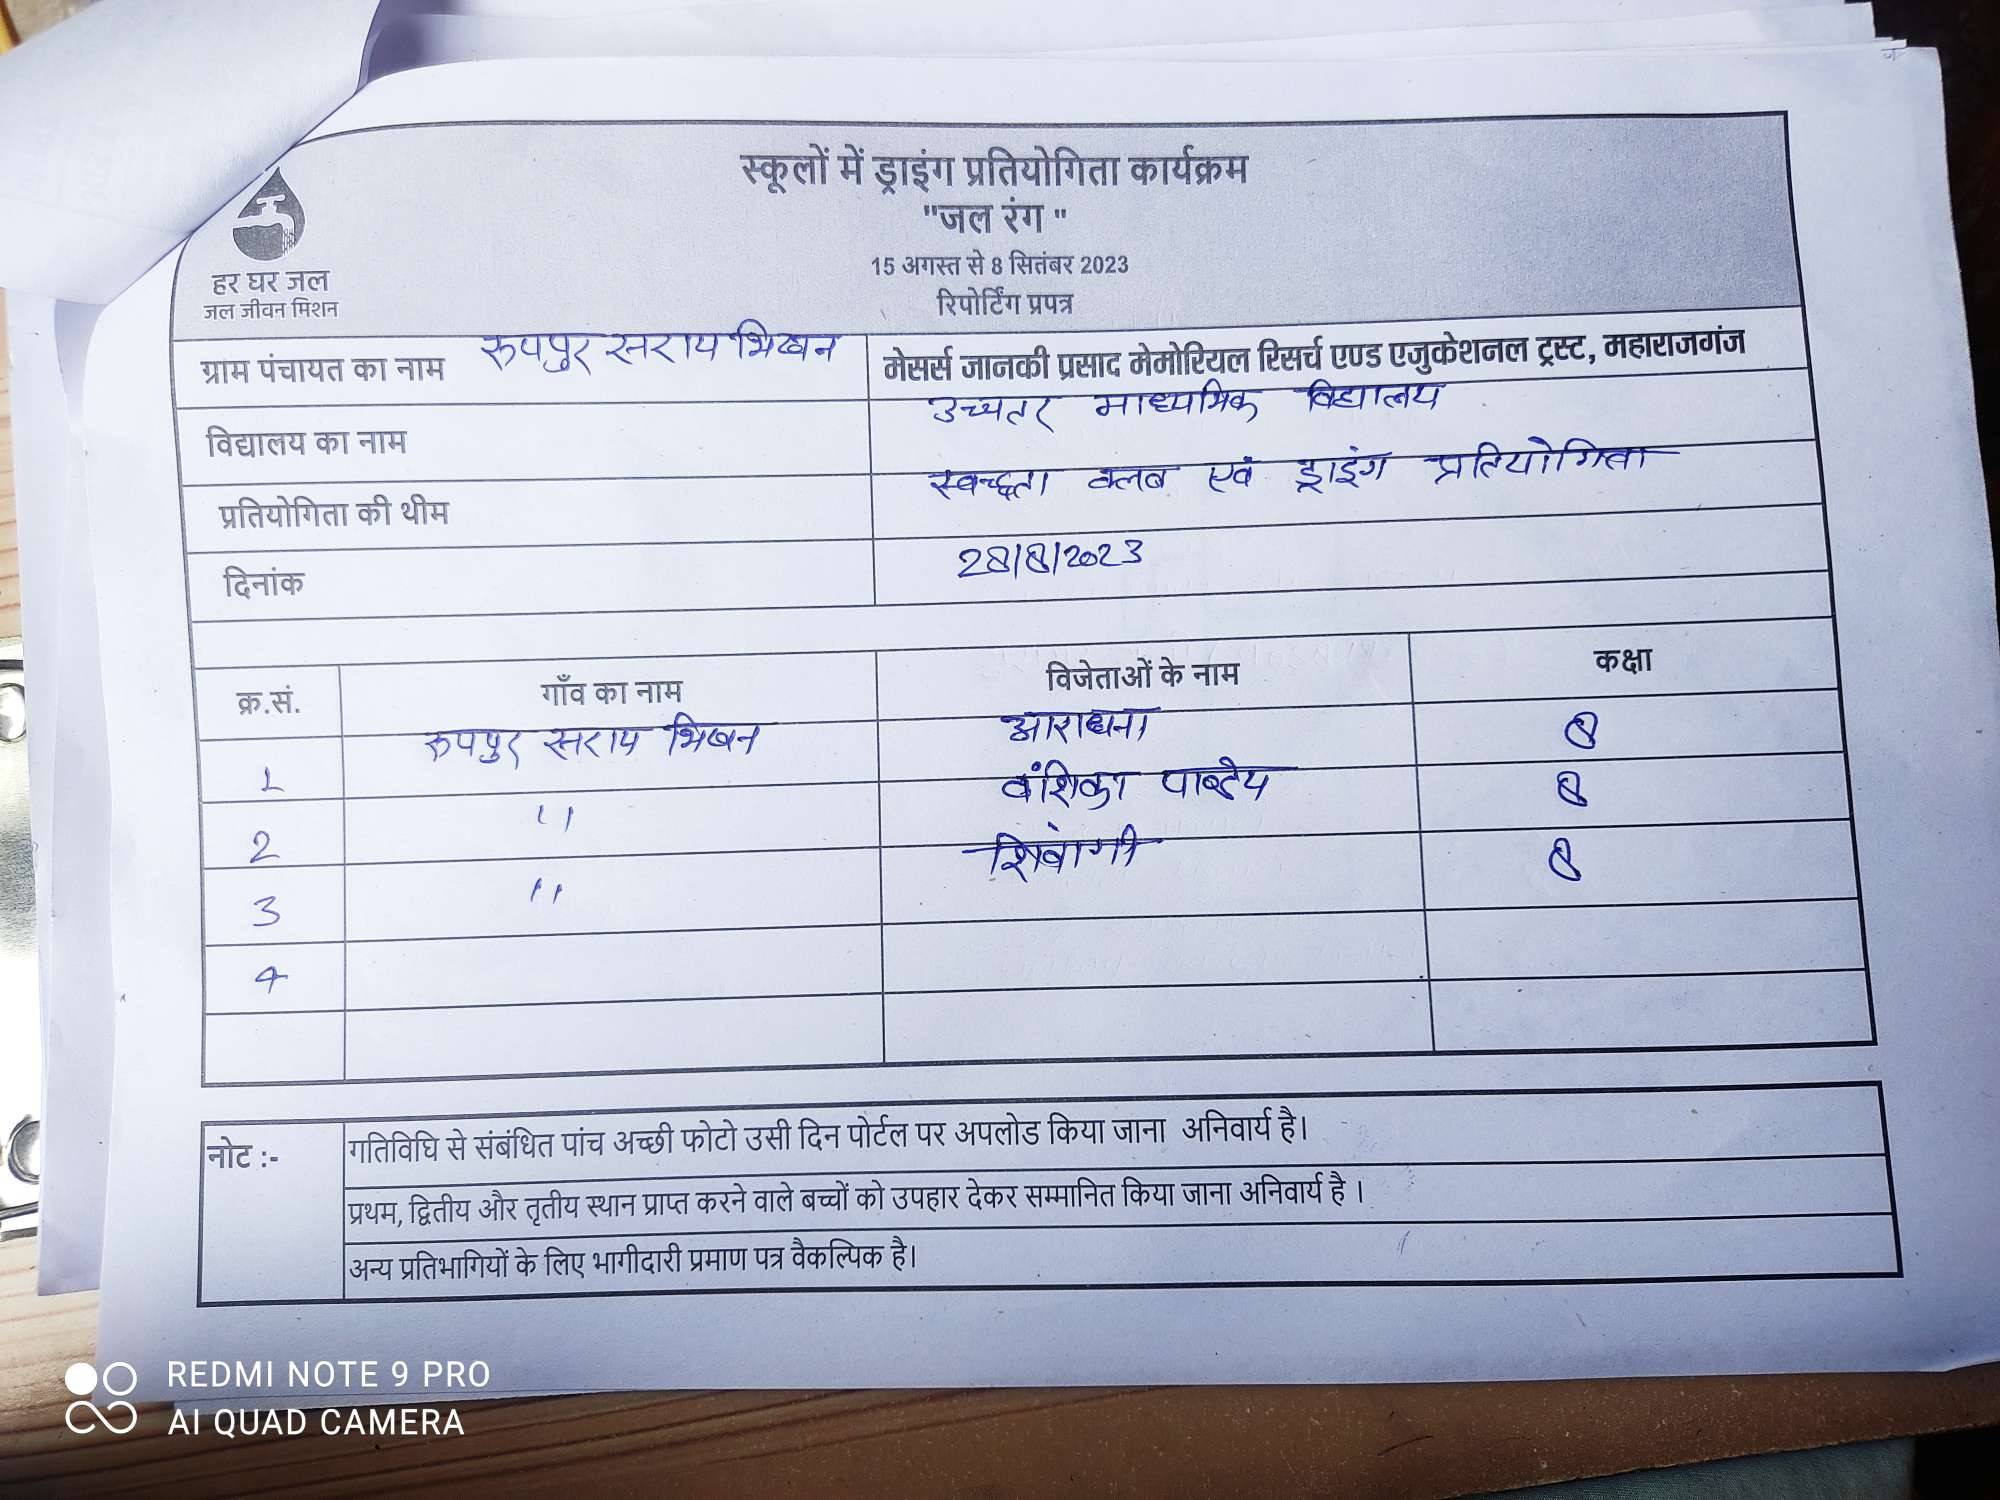 स्कूलों में ड्राइंग प्रतियोगिता कार्यक्रम
"जल रंग "
15 अगस्त से 8 सितंबर 2023
रिपोर्टिंग प्रपत्र
हर घर जल
जल जीवन मिशन
ग्राम पंचायत का नाम रुपपुर सराय भिखन मेसर्स जानकी प्रसाद मेमोरियल रिसर्च एण्ड एजुकेशनल ट्रस्ट, महाराजगंज
विद्यालय का नाम उच्चतर माध्यमिक विद्यालय
प्रतियोगिता की थीम स्वच्छता क्लब एवं ड्राइंग प्रतियोगिता
दिनांक 28/8/2023
क्र.सं. गाँव का नाम विजेताओं के नाम कक्षा
1 रुपपुर सराय भिखन आराधना 8
2 " वंशिका पाण्डेय 8
3 " शिवांगी 8
4
नोट :- गतिविधि से संबंधित पांच अच्छी फोटो उसी दिन पोर्टल पर अपलोड किया जाना अनिवार्य है।
प्रथम, द्वितीय और तृतीय स्थान प्राप्त करने वाले बच्चों को उपहार देकर सम्मानित किया जाना अनिवार्य है ।
अन्य प्रतिभागियों के लिए भागीदारी प्रमाण पत्र वैकल्पिक है।
REDMI NOTE 9 PRO
AI QUAD CAMERA